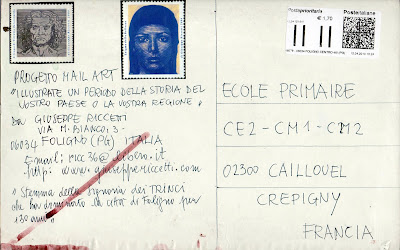 Postaprioritaria
Posteitaliane
€ 1,70
PROGETTO MAIL ART
"ILLUSTRATE UN PERIODO DELLA STORIA DEL
VOSTRO PAESE O LA VOSTRA REGIONE"
DA GIUSEPPE RICCETTI
VIA M. BIANCO, 3 -
06034 FOLIGNO (PG) ITALIA
Email: ricc36@libero.it
http: www.giuseppericcetti.com
"Stemma della signoria dei TRINCI
che ha dominato la città di Foligno per
130 anni"
ECOLE PRIMAIRE
CE2 - CM1 - CM2
02300 CAILLOUEL
CREPIGNY
FRANCIA